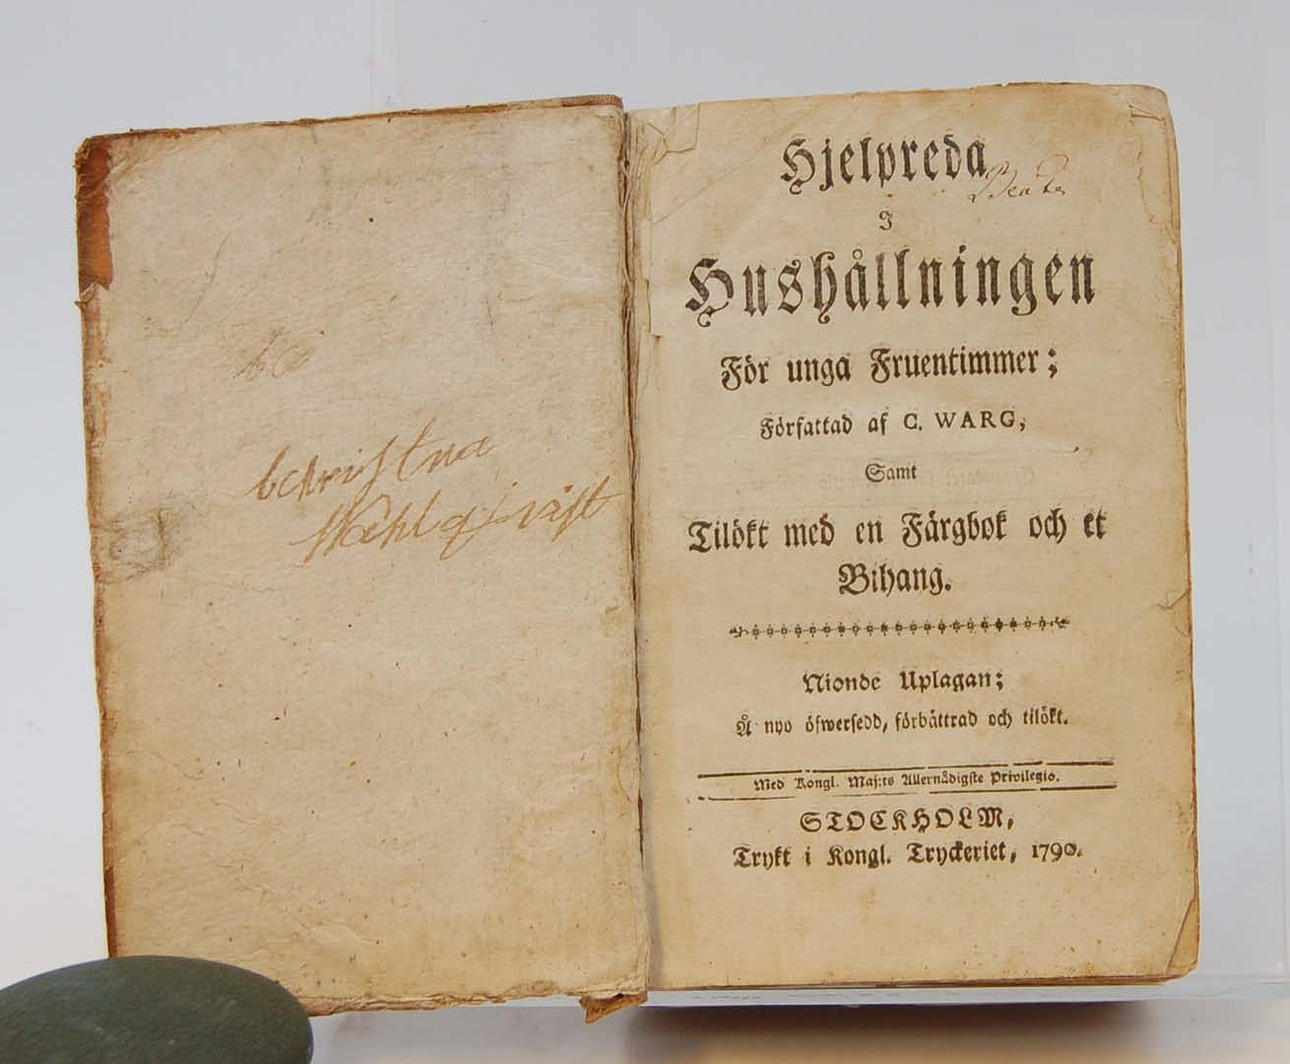 Christina
Wahlqwist
Hjelpreda
Beata
I
Hushållningen
För unga Fruentimmer;
Författad af C. WARG,
Samt
Tilökt med en Färgbok och et
Bihang.
Nionde Uplagan;
Å nyo öfwersedd, förbättrad och tilökt.
Med Kongl. Maj:ts Allernådigste Privilegio.
STOCKHOLM,
Trykt i Kongl. Tryckeriet, 1790.